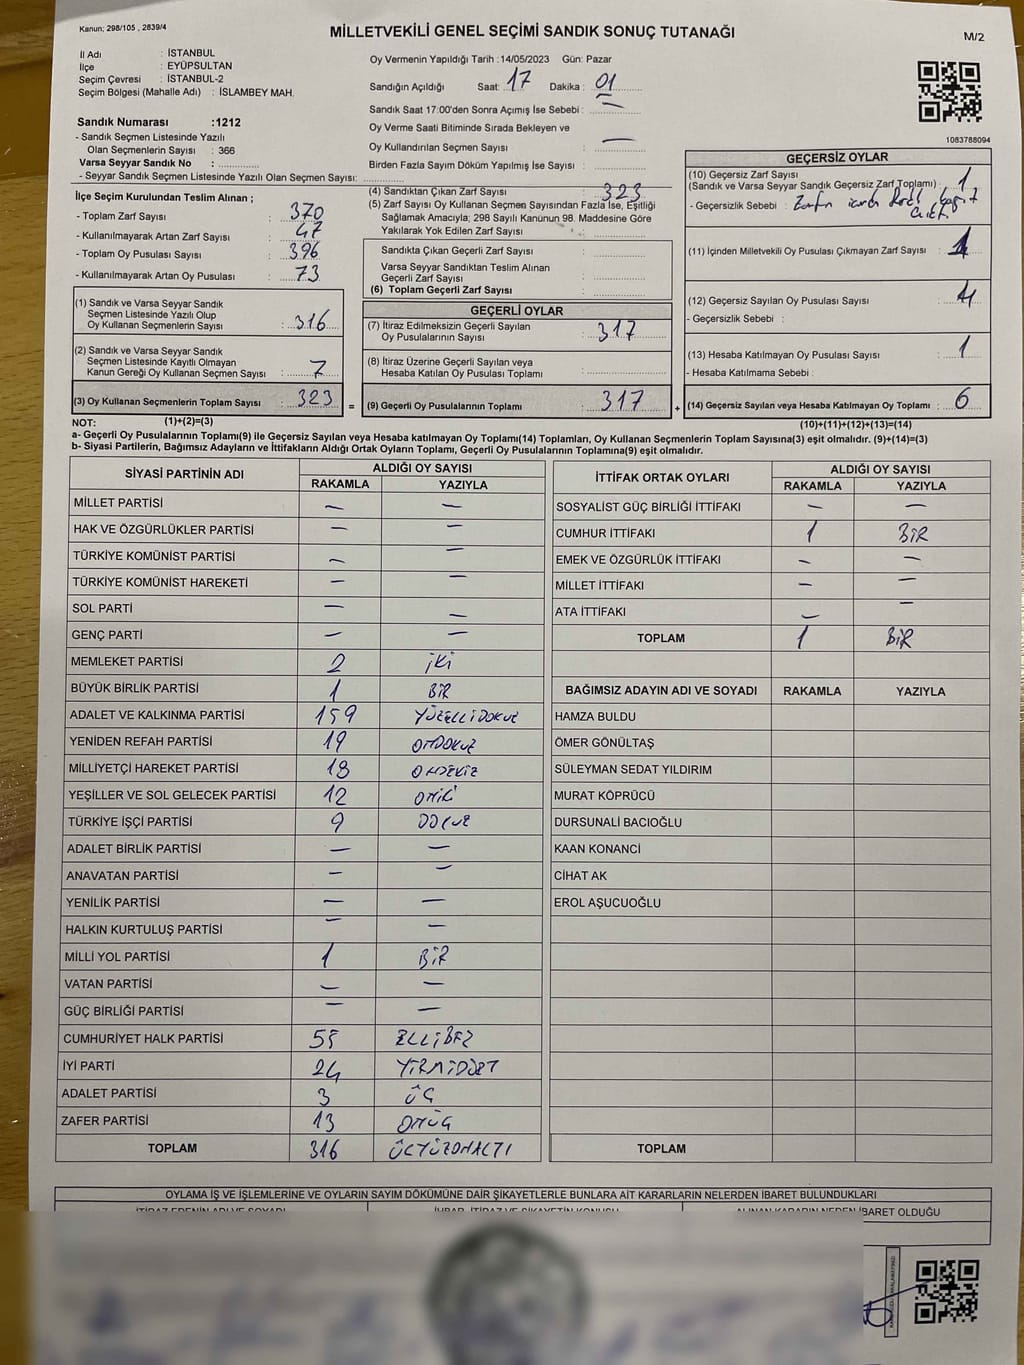 Kanun; 298/105 , 2839/4
MİLLETVEKİLİ GENEL SEÇİMİ SANDIK SONUÇ TUTANAĞI
M/2
İl Adı : İSTANBUL
İlçe : EYÜPSULTAN
Seçim Çevresi : İSTANBUL-2
Seçim Bölgesi (Mahalle Adı) : İSLAMBEY MAH.
Sandık Numarası :1212
- Sandık Seçmen Listesinde Yazılı
Olan Seçmenlerin Sayısı : 366
Varsa Seyyar Sandık No :
- Seyyar Sandık Seçmen Listesinde Yazılı Olan Seçmen Sayısı:
Oy Vermenin Yapıldığı Tarih :14/05/2023 Gün: Pazar
Sandığın Açıldığı Saat: 17 Dakika : 01
Sandık Saat 17:00'den Sonra Açımış İse Sebebi : —
Oy Verme Saati Bitiminde Sırada Bekleyen ve
Oy Kullandırılan Seçmen Sayısı : —
Birden Fazla Sayım Döküm Yapılmış İse Sayısı :
1083788094
İlçe Seçim Kurulundan Teslim Alınan ;
- Toplam Zarf Sayısı : 370
- Kullanılmayarak Artan Zarf Sayısı : 47
- Toplam Oy Pusulası Sayısı : 396
- Kullanılmayarak Artan Oy Pusulası : 73
(1) Sandık ve Varsa Seyyar Sandık
Seçmen Listesinde Yazılı Olup
Oy Kullanan Seçmenlerin Sayısı : 316
(2) Sandık ve Varsa Seyyar Sandık
Seçmen Listesinde Kayıtlı Olmayan
Kanun Gereği Oy Kullanan Seçmen Sayısı : 7
(3) Oy Kullanan Seçmenlerin Toplam Sayısı : 323
(4) Sandıktan Çıkan Zarf Sayısı : 323
(5) Zarf Sayısı Oy Kullanan Seçmen Sayısından Fazla İse, Eşitliği
Sağlamak Amacıyla; 298 Sayılı Kanunun 98. Maddesine Göre
Yakılarak Yok Edilen Zarf Sayısı :
Sandıkta Çıkan Geçerli Zarf Sayısı :
Varsa Seyyar Sandıktan Teslim Alınan
Geçerli Zarf Sayısı :
(6) Toplam Geçerli Zarf Sayısı :
GEÇERLİ OYLAR
(7) İtiraz Edilmeksizin Geçerli Sayılan
Oy Pusulalarının Sayısı : 317
(8) İtiraz Üzerine Geçerli Sayılan veya
Hesaba Katılan Oy Pusulası Toplamı :
= (9) Geçerli Oy Pusulalarının Toplamı : 317 +
GEÇERSİZ OYLAR
(10) Geçersiz Zarf Sayısı
(Sandık ve Varsa Seyyar Sandık Geçersiz Zarf Toplamı) : 1
- Geçersizlik Sebebi :
(11) İçinden Milletvekili Oy Pusulası Çıkmayan Zarf Sayısı :
(12) Geçersiz Sayılan Oy Pusulası Sayısı : 4
- Geçersizlik Sebebi :
(13) Hesaba Katılmayan Oy Pusulası Sayısı : 1
- Hesaba Katılmama Sebebi :
(14) Geçersiz Sayılan veya Hesaba Katılmayan Oy Toplamı : 6
NOT: (1)+(2)=(3) (10)+(11)+(12)+(13)=(14)
a- Geçerli Oy Pusulalarının Toplamı(9) ile Geçersiz Sayılan veya Hesaba katılmayan Oy Toplamı(14) Toplamları, Oy Kullanan Seçmenlerin Toplam Sayısına(3) eşit olmalıdır. (9)+(14)=(3)
b- Siyasi Partilerin, Bağımsız Adayların ve İttifakların Aldığı Ortak Oyların Toplamı, Geçerli Oy Pusulalarının Toplamına(9) eşit olmalıdır.
SİYASİ PARTİNİN ADI ALDIĞI OY SAYISI
RAKAMLA YAZIYLA
MİLLET PARTİSİ — —
HAK VE ÖZGÜRLÜKLER PARTİSİ — —
TÜRKİYE KOMÜNİST PARTİSİ — —
TÜRKİYE KOMÜNİST HAREKETİ — —
SOL PARTİ — —
GENÇ PARTİ — —
MEMLEKET PARTİSİ 2 İKİ
BÜYÜK BİRLİK PARTİSİ 1 BİR
ADALET VE KALKINMA PARTİSİ 159 YÜZELLİDOKUZ
YENİDEN REFAH PARTİSİ 19 ONDOKUZ
MİLLİYETÇİ HAREKET PARTİSİ 18 ONSEKİZ
YEŞİLLER VE SOL GELECEK PARTİSİ 12 ONİKİ
TÜRKİYE İŞÇİ PARTİSİ 9 DOKUZ
ADALET BİRLİK PARTİSİ — —
ANAVATAN PARTİSİ — —
YENİLİK PARTİSİ — —
HALKIN KURTULUŞ PARTİSİ — —
MİLLİ YOL PARTİSİ 1 BİR
VATAN PARTİSİ — —
GÜÇ BİRLİĞİ PARTİSİ — —
CUMHURİYET HALK PARTİSİ 55 ELLİBEŞ
İYİ PARTİ 24 YİRMİDÖRT
ADALET PARTİSİ 3 ÜÇ
ZAFER PARTİSİ 13 ONÜÇ
TOPLAM 316 ÜÇYÜZONALTI
İTTİFAK ORTAK OYLARI ALDIĞI OY SAYISI
RAKAMLA YAZIYLA
SOSYALİST GÜÇ BİRLİĞİ İTTİFAKI — —
CUMHUR İTTİFAKI 1 BİR
EMEK VE ÖZGÜRLÜK İTTİFAKI — —
MİLLET İTTİFAKI — —
ATA İTTİFAKI — —
TOPLAM 1 BİR
BAĞIMSIZ ADAYIN ADI VE SOYADI RAKAMLA YAZIYLA
HAMZA BULDU
ÖMER GÖNÜLTAŞ
SÜLEYMAN SEDAT YILDIRIM
MURAT KÖPRÜCÜ
DURSUNALİ BACIOĞLU
KAAN KONANCİ
CİHAT AK
EROL AŞUCUOĞLU
TOPLAM
OYLAMA İŞ VE İŞLEMLERİNE VE OYLARIN SAYIM DÖKÜMÜNE DAİR ŞİKAYETLERLE BUNLARA AİT KARARLARIN NELERDEN İBARET BULUNDUKLARI
İTİRAZ EDENİN ADI VE SOYADI İHBAR, İTİRAZ VE ŞİKAYETİN KONUSU ALINAN KARARIN NEDEN İBARET OLDUĞU